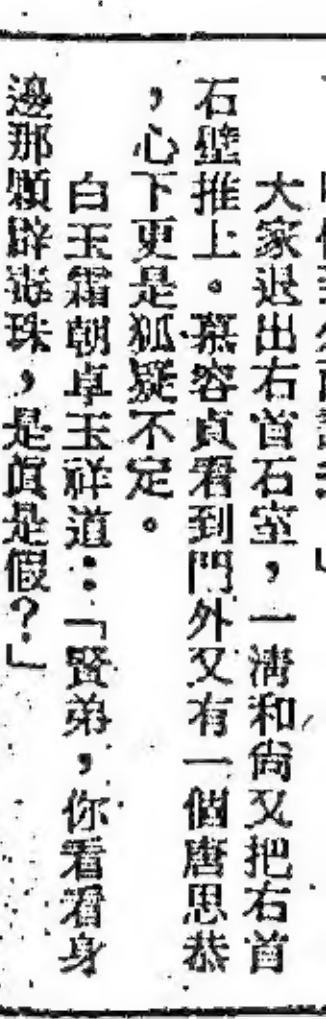 大家退出右首石室，一淸和尙又把右首
石壁推上。慕容貞看到門外又有一個唐思恭
，心下更是狐疑不定。
白玉霜朝卓玉祥道：「賢弟，你看看身
邊那顆辟毒珠，是眞是假？」